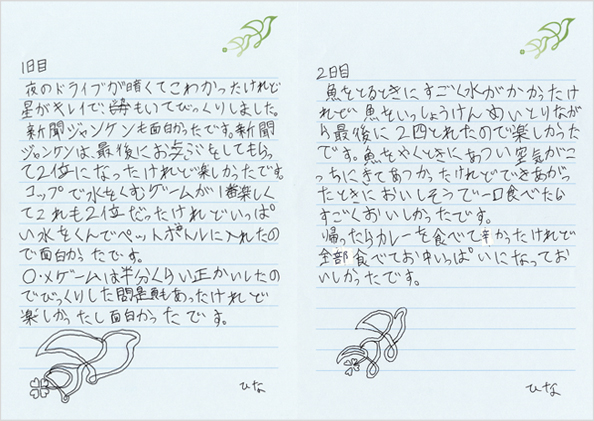 1日目
夜のドライブが暗くてこわかったけれど
星がキレイで、もいてびっくりしました。
新聞ジャンケンも面白かったです。新聞
ジャンケンは、最後におんぶをしてもらっ
て2位になったけれど楽しかったです。
コップで水をくむゲームが1番楽しく
てこれも2位だったけれどいっぱ
い水をくんでペットボトルに入れたの
で面白かったです。
○×ゲームは半分くらい正かいしたの
でびっくりした問題もあったけれど
楽しかったし面白かったです。
ひな
2日目
魚をとるときにすごく水がかかったけ
れど魚をいっしょうけんめいとりなが
ら最後に2四とれたので楽しかった
です。魚をやくときにあつい空気がこ
っちにきてあつかったけれどできあがっ
たときにおいしそうで一口食べたら
すごくおいしかったです。
帰ったらカレーを食べて辛かったけれど
全部食べてお中いっぱいになってお
いしかったです。
ひな